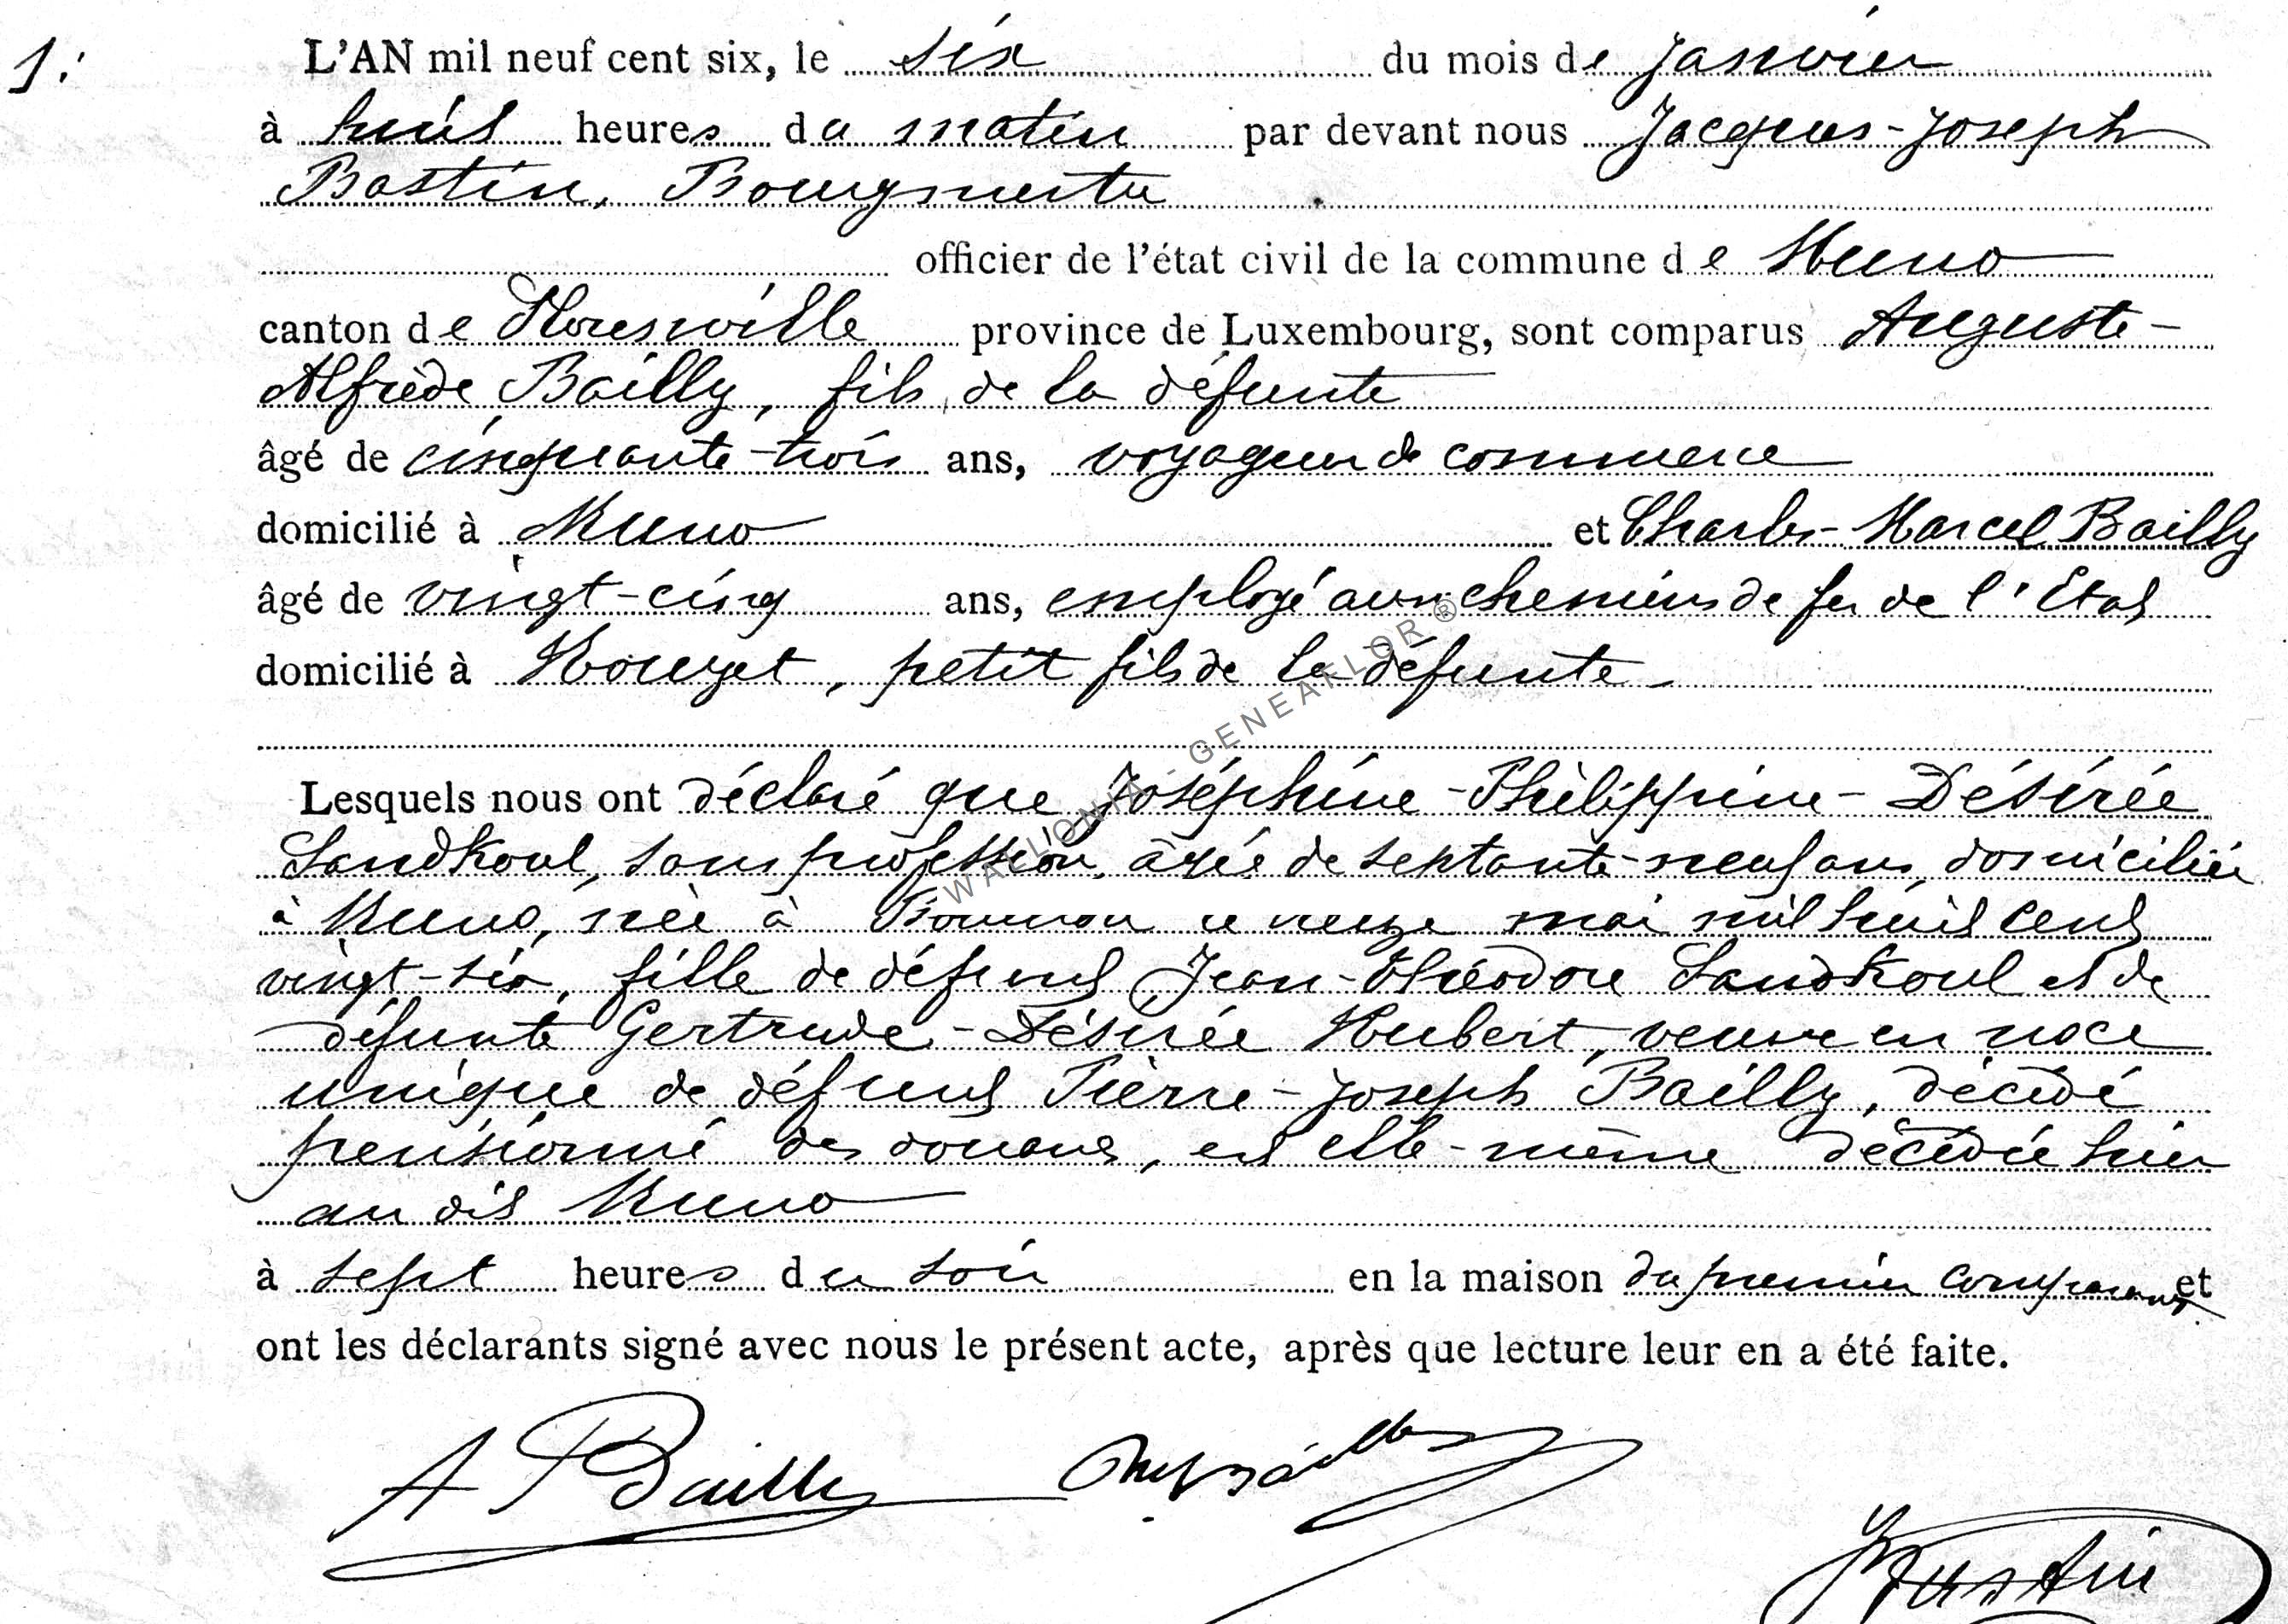 1.
L'AN mil neuf cent six, le six du mois de Janvier
à huit heures du matin par devant nous Jacques-Joseph
Bastin, Bourgmestre
officier de l'état civil de la commune de Muno
canton de Florenville province de Luxembourg, sont comparus Auguste-
Alfrède Bailly, fils de la défunte
âgé de cinquante-trois ans, voyageur de commerce
domicilié à Muno et Charles-Marcel Bailly
âgé de vingt-cinq ans, employé aux chemins de fer de l'Etat
domicilié à Houyet, petit fils de la défunte
Lesquels nous ont déclaré que Joséphine-Philippine-Désirée
Sandkoul, sans profession, âgée de septante-neuf ans, domiciliée
à Muno, née à le mai mil huit cent
vingt-six, fille de défunt Jean-Théodore Sandkoul et de
défunte Gertrude-Désirée Hubert, veuve en noce
unique de défunt Pierre-Joseph Bailly, décédé
pensionné des douanes, est elle-même décédée hier
au dit Muno
à sept heures du soir en la maison du premier comparant et
ont les déclarants signé avec nous le présent acte, après que lecture leur en a été faite.
A Bailly
Bastin
WALLONIA - GENEAFLOR ®